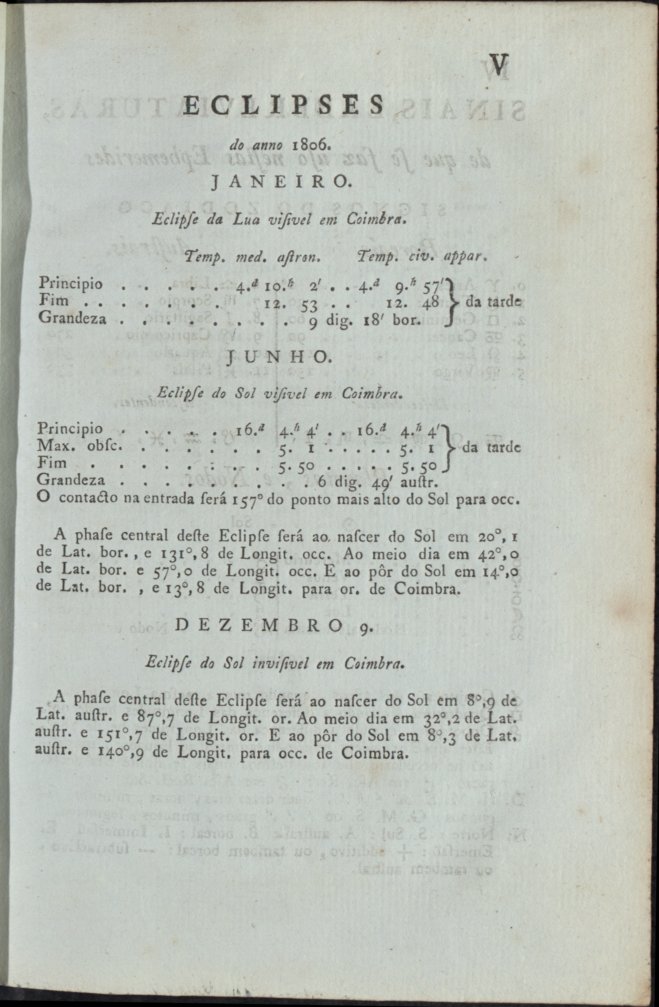 V
ECLIPSES
do anno 1806.
JANEIRO.
Eclipſe da Lua viſivel em Coimbra.
Temp. med. aſtron. Temp. civ. appar.
Principio . . . . . . 4.ᵈ 10.ʰ 2′ . . 4.ᵈ 9.ʰ 57′
Fim . . . . . . . . . 12. 53 . . 12. 48 } da tarde
Grandeza . . . . . . . . 9 dig. 18′ bor.
JUNHO.
Eclipſe do Sol viſivel em Coimbra.
Principio . . . . . . 16.ᵈ 4.ʰ 4′ . . 16.ᵈ 4.ʰ 4′
Max. obſc. . . . . . . . 5. 1 . . . . . 5. 1 } da tarde
Fim . . . . . . . . . 5. 50 . . . . . 5. 50
Grandeza . . . . . . . . . 6 dig. 49′ auſtr.
O contacto na entrada ſerá 157° do ponto mais alto do Sol para occ.
A phaſe central deſte Eclipſe ſerá ao naſcer do Sol em 20°, 1
de Lat. bor., e 131°, 8 de Longit. occ. Ao meio dia em 42°,0
de Lat. bor. e 57°,0 de Longit. occ. E ao pôr do Sol em 14°,0
de Lat. bor. , e 13°, 8 de Longit. para or. de Coimbra.
DEZEMBRO 9.
Eclipſe do Sol inviſivel em Coimbra.
A phaſe central deſte Eclipſe ſerá ao naſcer do Sol em 8°,9 de
Lat. auſtr. e 87°,7 de Longit. or. Ao meio dia em 32°,2 de Lat.
auſtr. e 151°,7 de Longit. or. E ao pôr do Sol em 8°,3 de Lat.
auſtr. e 140°,9 de Longit. para occ. de Coimbra.